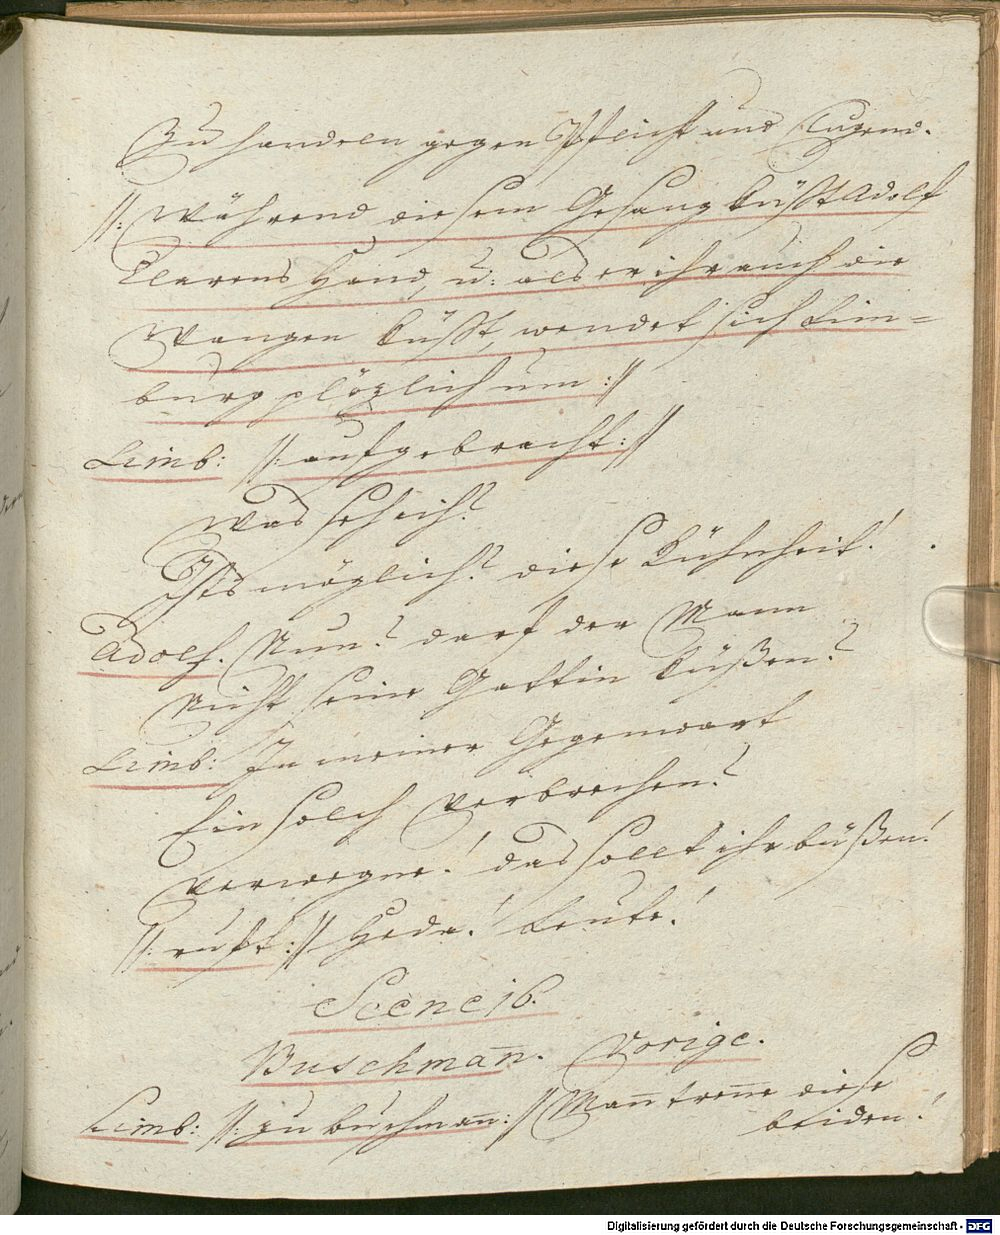 Zu handeln gegen Pflicht und Tugend.
//: Während diesem Gesang küßt Adolf
Clarens Hand, u: als er ihr auch die
Wangen küßt, wendet sich Lim=
burg plözlich um ://
Limb: //: aufgebracht: //
Was seh ich?
Ists möglich? diese Kühnheit!
Adolf. Nun? darf der Mann
Nicht seine Gattin küßen?
Limb: In meiner Gegenwart
Ein solch Verbrechen?
Verwegne! das sollt ihr büßen!
//: ruft :// Heda! Leute!
Scene 16.
Buschman̄. Vorige.
Limb: //: zu Buschman̄: // Man̄ tren̄e diese
beiden!
Digitalisierung gefördert durch die Deutsche Forschungsgemeinschaft - DFG